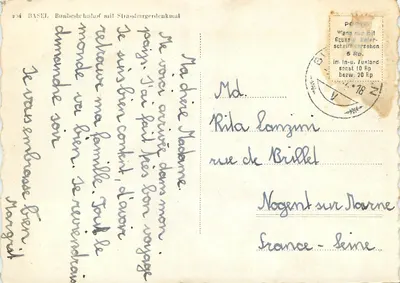 BASEL Bundesbahnhof mit Strassburgerdenkmal
Ma chère Madame
Me voici arrivée dans mon
pays. J'ai fait très bon voyage
Je suis bien content d'avoir
retrouver ma famille. Tout le
monde va bien. Je reviendrais
dimanche soir
Je vais embrasse bien
Margrit
im In- u. Ausland
sonst 10 Rp
bezw. 20 Rp
Md.
Rita Lanzini
rue de Brillet
Nogent sur Marne
France - Seine